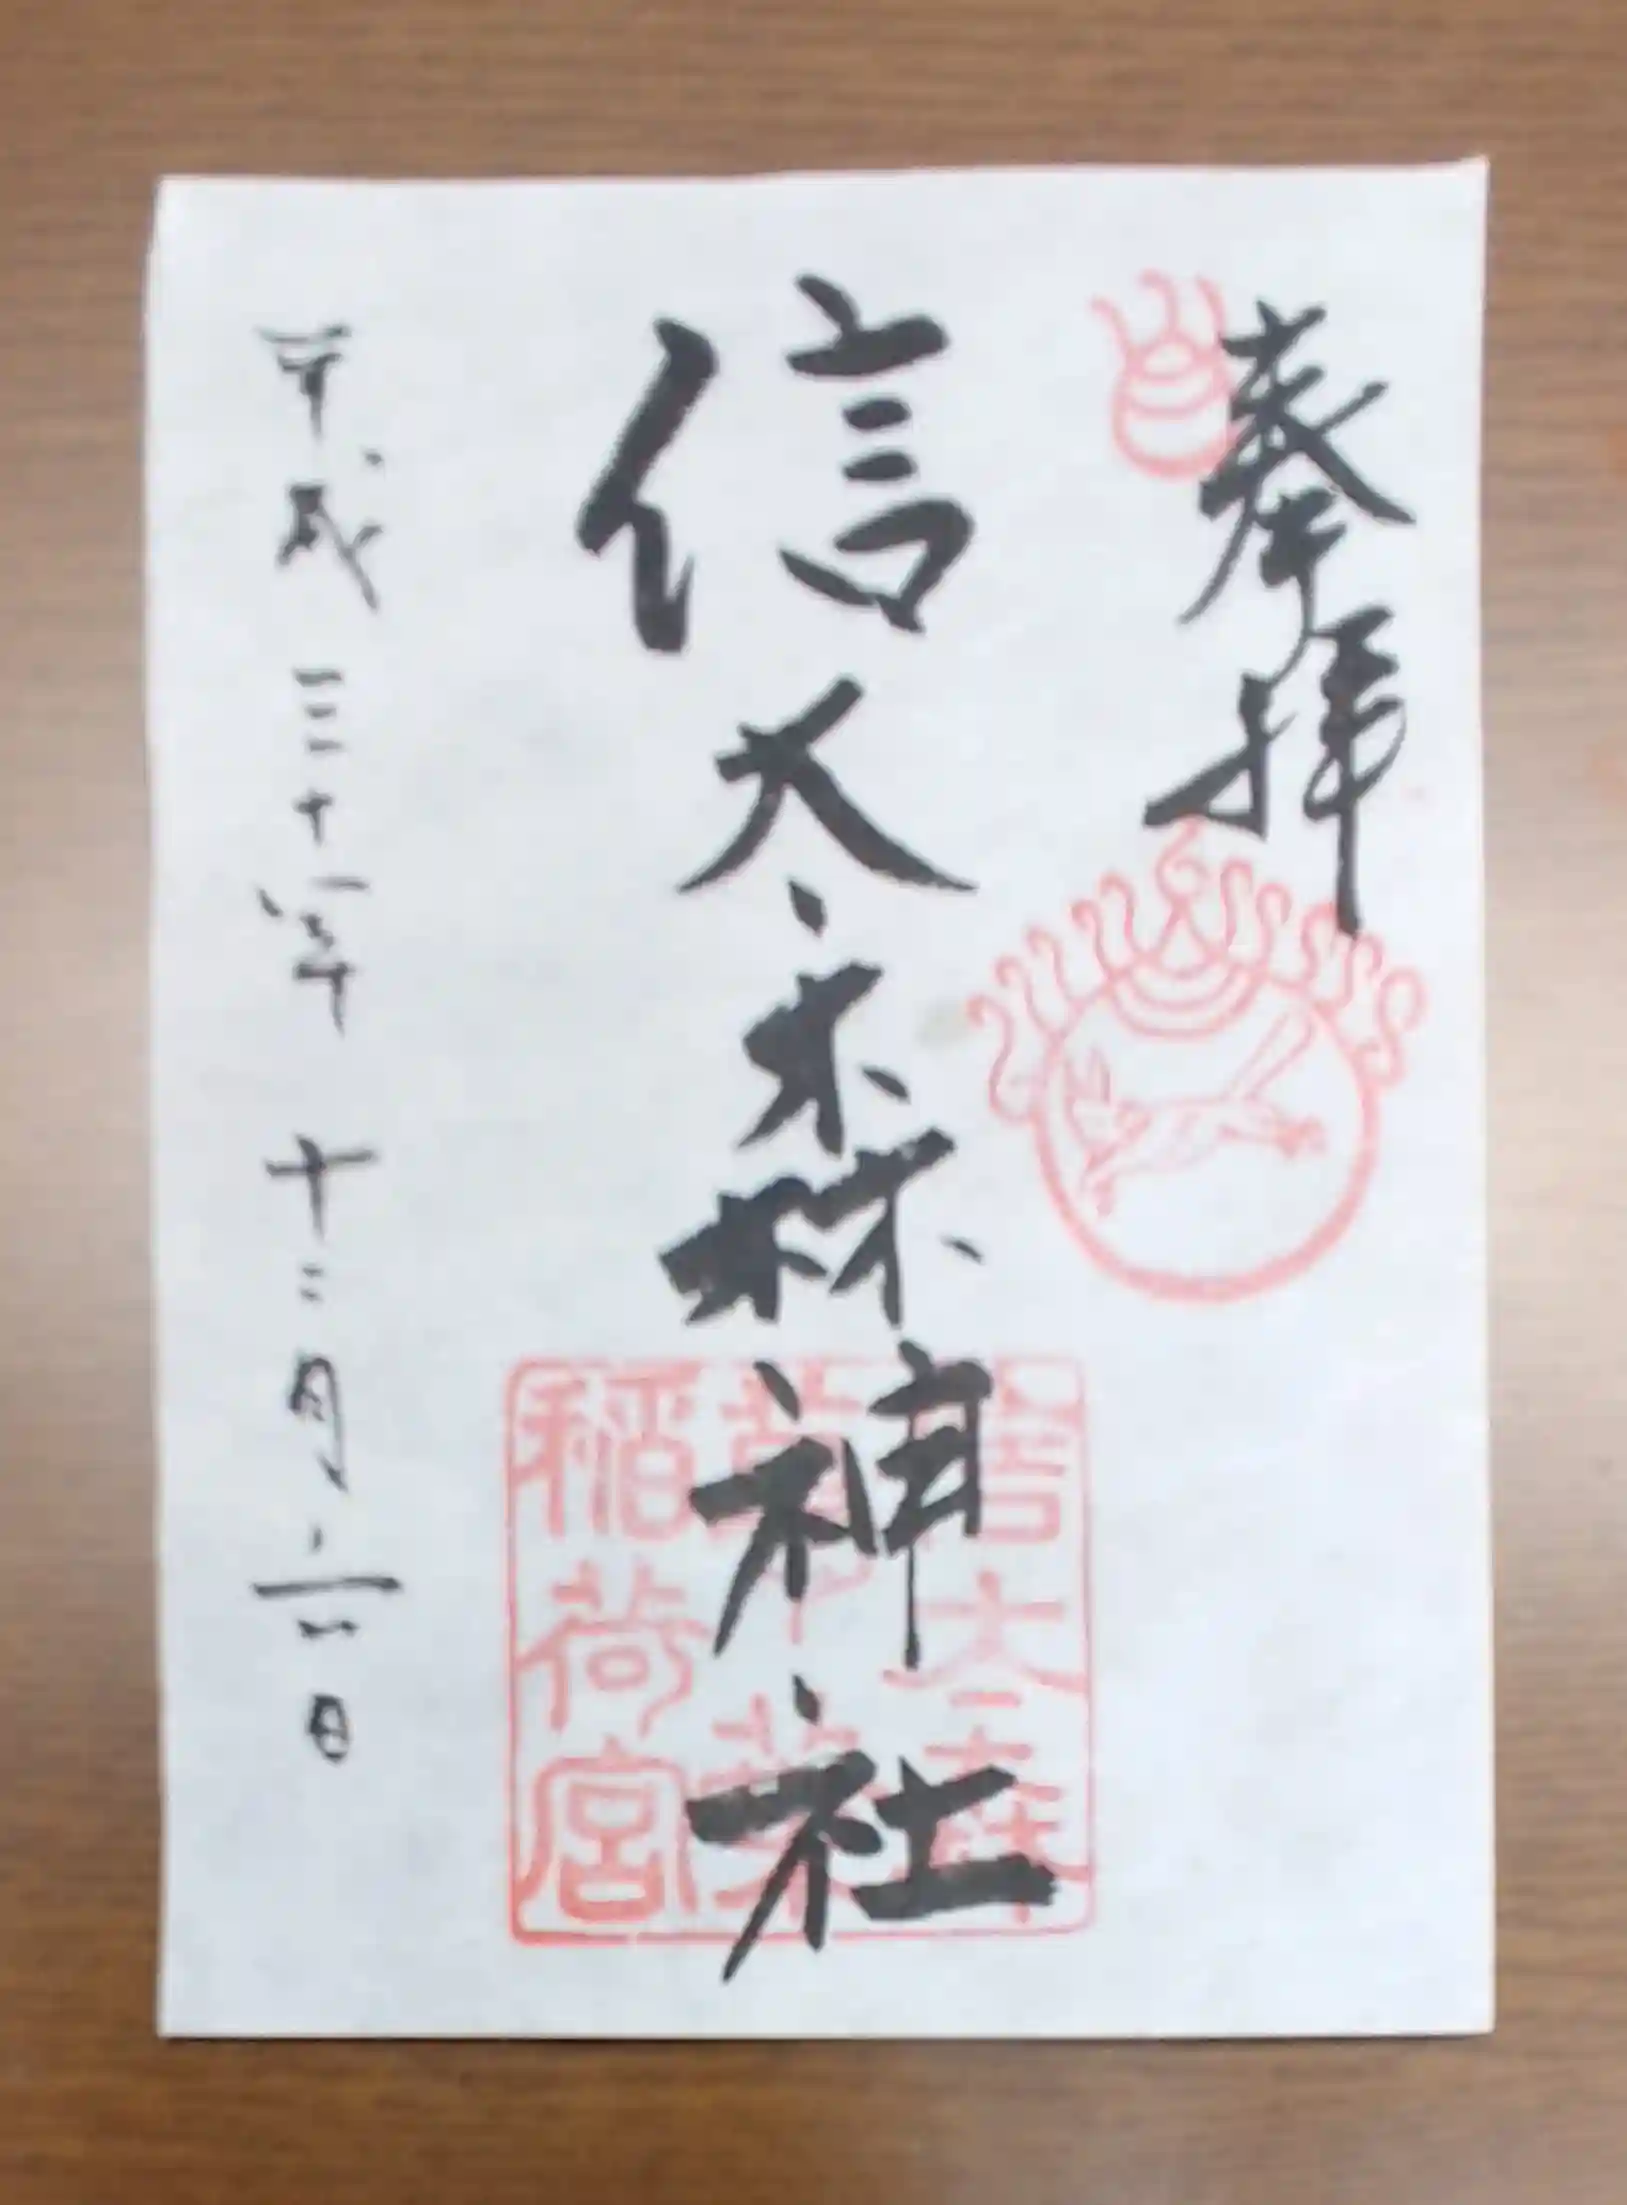 奉拝
信太森神社
平成三十年 十二月六日
信太森
葛葉
稲荷宮